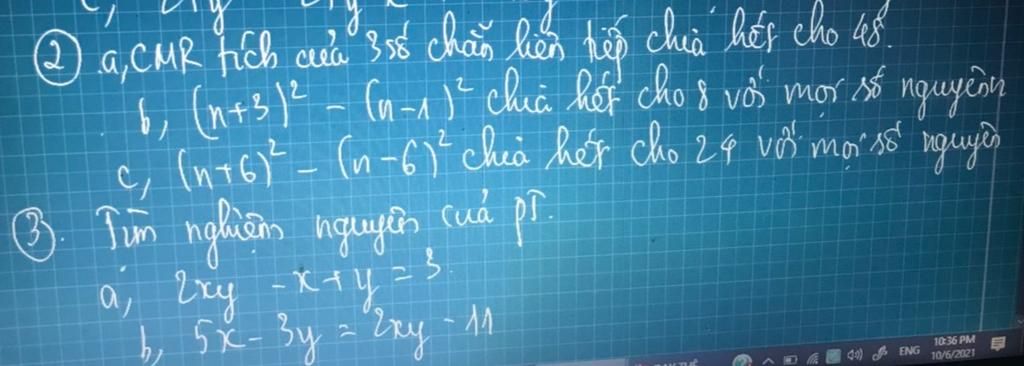 ② a, CMR tích của 3 số chẵn liên tiếp chia hết cho 48.
b, (n+3)² - (n-1)² chia hết cho 8 với mọi số nguyên n
c, (n+6)² - (n-6)² chia hết cho 24 với mọi số nguyên
③. Tìm nghiệm nguyên của pT.
a, 2xy - x + y = 3.
b, 5x - 3y = 2xy - 11
ENG
10:36 PM
10/6/2021